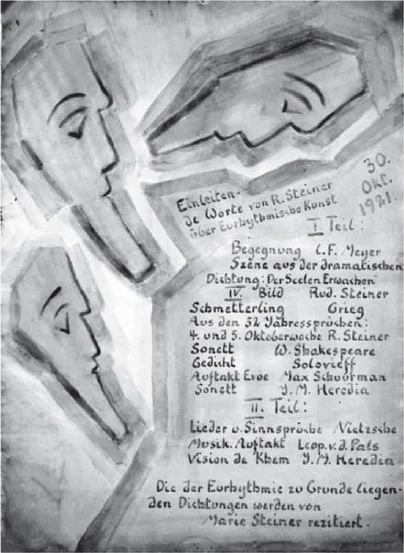 Einleiten-
de Worte von R. Steiner
über Eurhythmische Kunst
30.
Okt.
1921.
I Teil:
Begegnung C.F. Meyer
Szene aus der dramatischen
Dichtung: Der Seelen Erwachen
IV. Bild Rud. Steiner
Schmetterling Grieg
Aus den 52 Jahressprüchen:
4. und 5. Oktoberwoche R. Steiner
Sonett W. Shakespeare
Gedicht Solovieff
Auftakt Evoe Max Schuurman
Sonett J.M. Heredia
II. Teil:
Lieder u. Sinnsprüche Nietzsche
Musik. Auftakt Leop. v. d. Pals
Vision de Khem J.M. Heredia
Die der Eurhythmie zu Grunde liegen-
den Dichtungen werden von
Marie Steiner rezitiert.